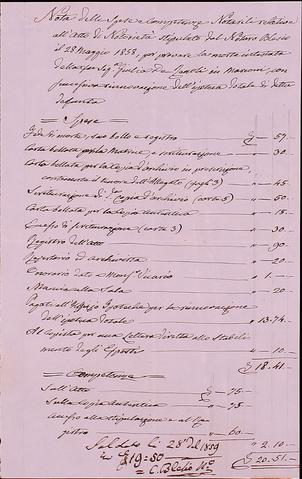 Nota delle Spese e competenze Notarili relative
all'Atto di Notorietà stipulato dal Notaro Blasio
il 28 Maggio 1858, per provare la morte intestata
della fu Sig.ª Giulia De in Marconi, con
successiva rinnovazione dell'ipoteca Dotale di detta
defunta
Spese
Fede di morte, suo bollo e registro £ — 57.
Carta bollata per la Matrice e scritturazione " — 30.
Carta bollata per la Copia d'archivio in prescrizione,
contenente il tenore dell'Allegato (pag. 3) " — 45
Scritturazione di d.ª copia d'archivio (carte 3) " — 50.
Carta bollata per la Copia Autentica " — 15
di scritturazione (carte 3) " — 30.
Registro dell'Atto " — 90
Repertorio ed archivista " — 20
Onorario dato a Mons.r Vicario " 1. —
Mancia alla Sala " — 20
Pagati all'Uffizio Ipoteche per la rinnovazione
dell'ipoteca Dotale " 13.74.
Al Copista per una lettera diretta allo Stabili
mento degli Esposti " — 10.
£ 18.41.
Competenze
Sull'Atto £ — 75
Sulla Copia Autentica " — 75
Accesso alla stipulazione e al Re
gistro " — 60
" 2.10.
£ 20.51.
Saldato li 28 1859
in £ 19:50
C. Blasio N.o